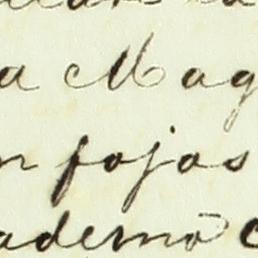 a Mag
n fojas
aderno C